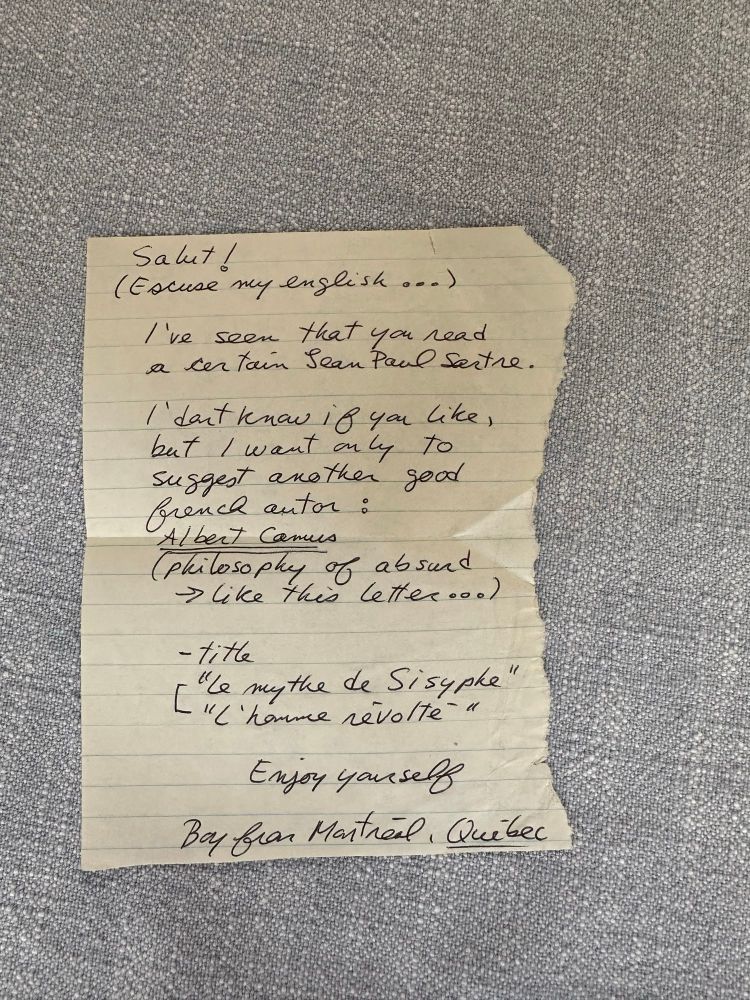 Salut!
(Escuse my english...)
I've seen that you read
a certain Jean Paul Sartre.
I don't know if you like,
but I want only to
suggest another good
french autor :
Albert Camus
(philosophy of absurd
→ like this letter...)
- title
"Le mythe de Sisyphe"
"L'homme révolté"
Enjoy yourself
Boy from Montréal, Québec